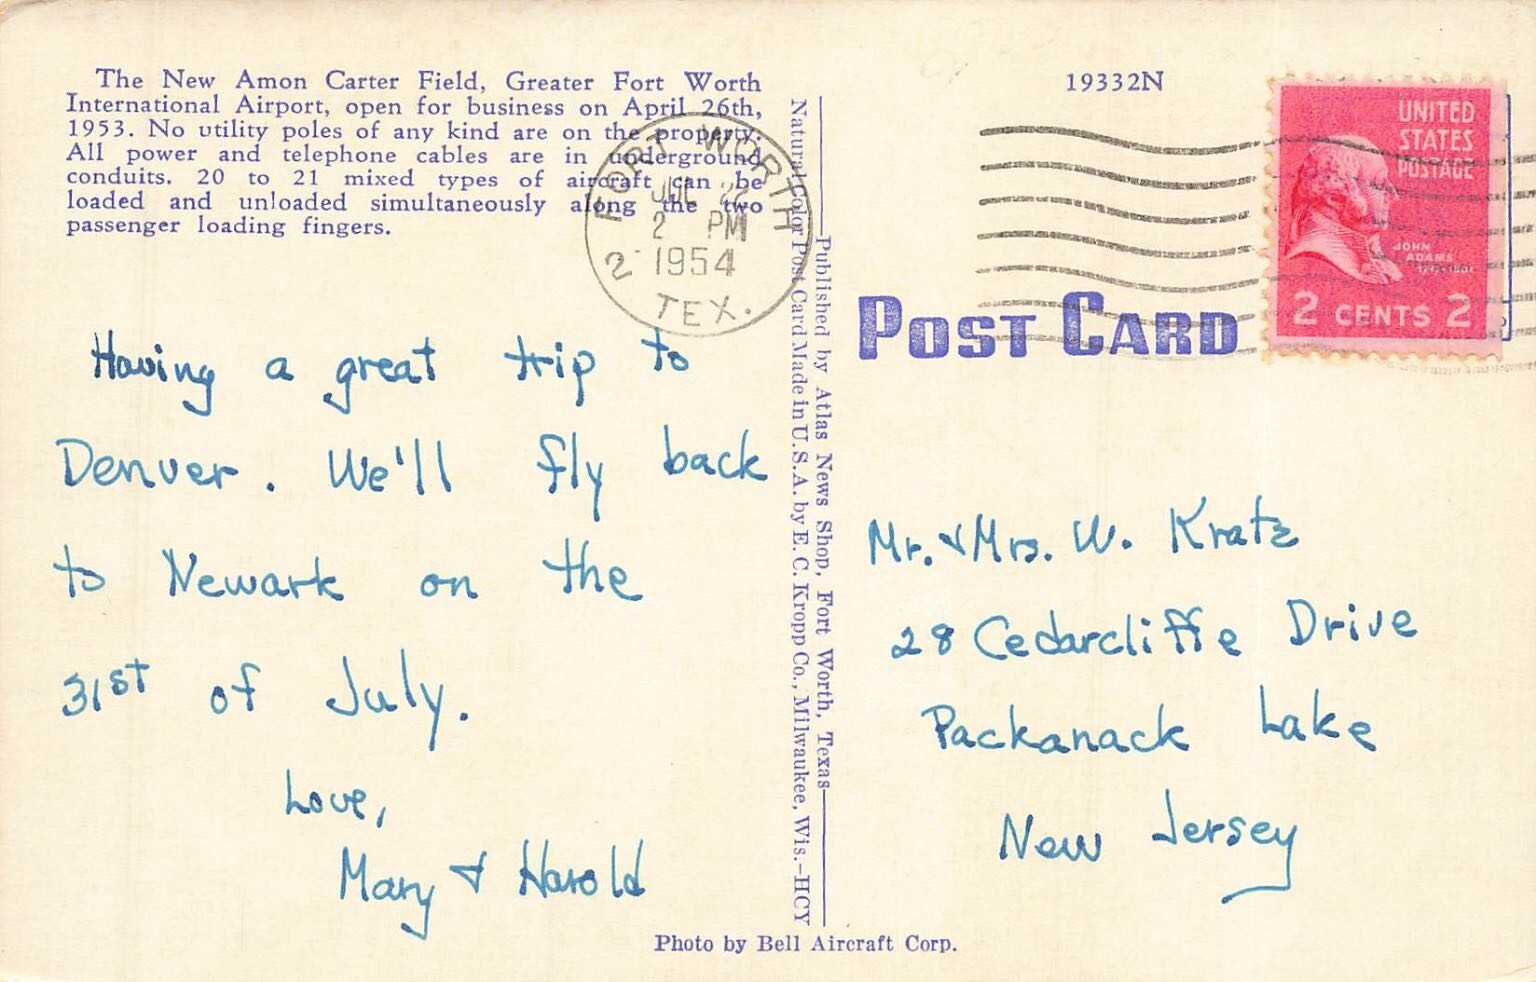 The New Amon Carter Field, Greater Fort Worth
International Airport, open for business on April 26th,
1953. No utility poles of any kind are on the property.
All power and telephone cables are in underground
conduits. 20 to 21 mixed types of aircraft can be
loaded and unloaded simultaneously along the two
passenger loading fingers.
FORT WORTH
JUL 22
2 PM
1954
2
TEX.
Having a great trip to
Denver. We'll fly back
to Newark on the
31st of July.
Love,
Mary & Harold
Published by Atlas News Shop, Fort Worth, Texas
Natural Color Post Card Made in U.S.A. by E. C. Kropp Co., Milwaukee, Wis.-HCY
19332N
UNITED
STATES
POSTAGE
JOHN
ADAMS
2 CENTS 2
POST CARD
Mr. & Mrs. W. Kratz
28 Cedarcliffe Drive
Packanack Lake
New Jersey
Photo by Bell Aircraft Corp.